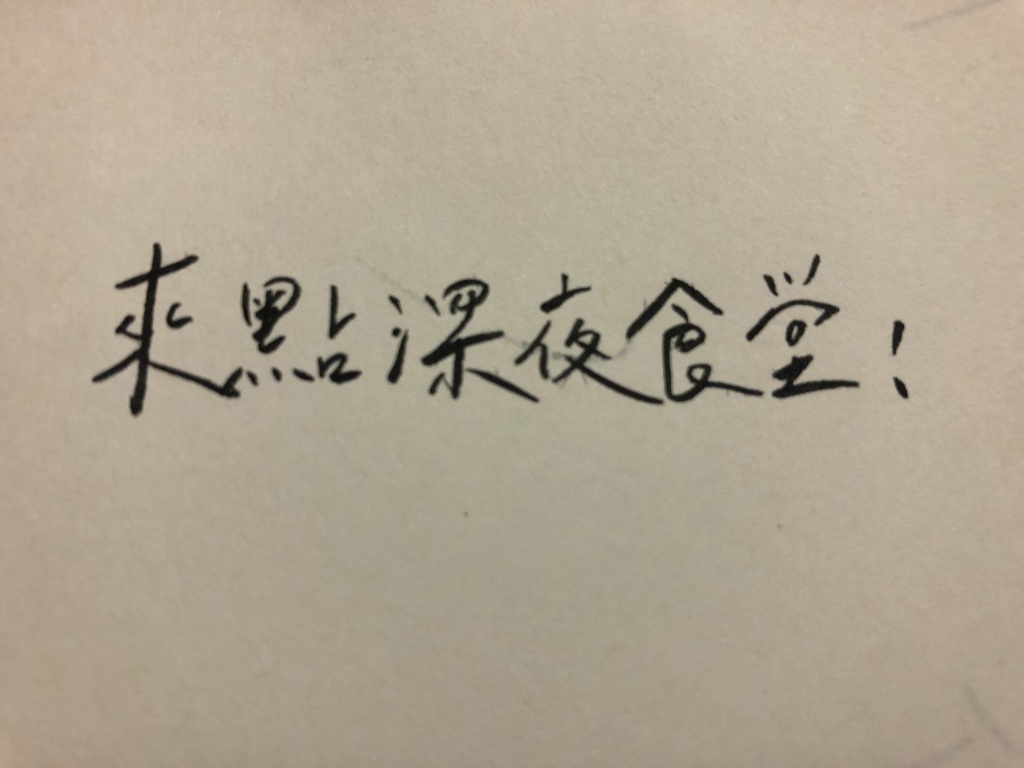 來點深夜食堂！